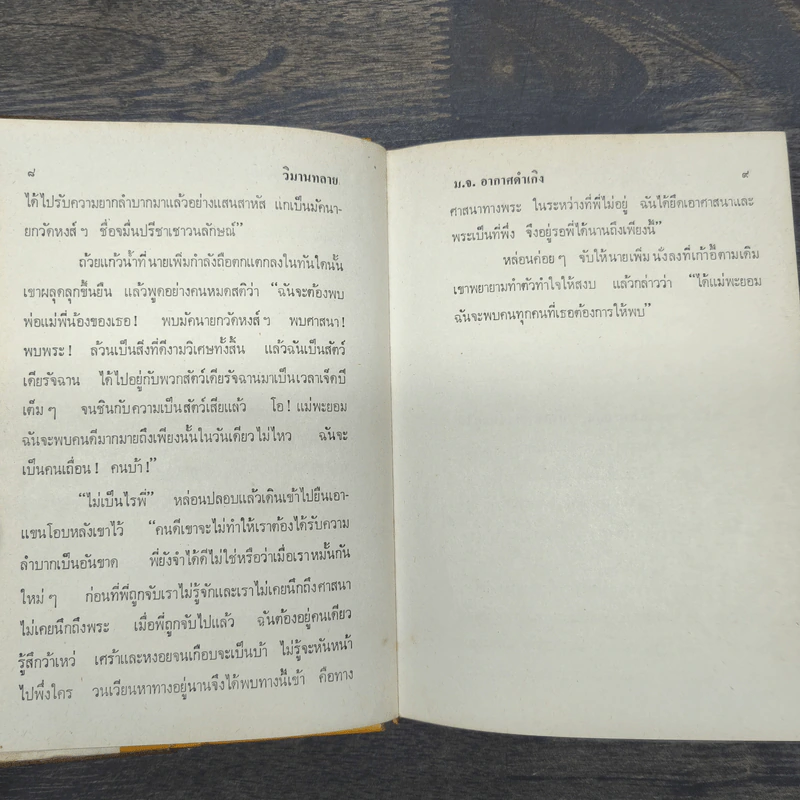 ๘ วิมานทลาย
ได้ไปรับความยากลำบากมาแล้วอย่างแสนสาหัส แกเป็นมัคนา-
ยกวัดหงส์ฯ ชื่อจมื่นปรีชาเชาวนลักษณ์”
ถ้วยแก้วน้ำที่นายเพิ่มกำลังถือตกแตกลงในทันใดนั้น
เขาผลุดลุกขึ้นยืน แล้วพูดอย่างคนหมดสติว่า “ฉันจะต้องพบ
พ่อแม่พี่น้องของเธอ! พบมัคนายกวัดหงส์ฯ พบศาสนา!
พบพระ! ล้วนเป็นสิ่งที่ดีงามวิเศษทั้งสิ้น แล้วฉันเป็นสัตว์
เดียรัจฉาน ได้ไปอยู่กับพวกสัตว์เดียรัจฉานมาเป็นเวลาเจ็ดปี
เต็มๆ จนชินกับความเป็นสัตว์เสียแล้ว โอ! แม่พะยอม
ฉันจะพบคนดีมากมายถึงเพียงนั้นในวันเดียวไม่ไหว ฉันจะ
เป็นคนเถื่อน! คนบ้า!”
“ไม่เป็นไรพี่” หล่อนปลอบแล้วเดินเข้าไปยืนเอา-
แขนโอบหลังเขาไว้ “คนดีเขาจะไม่ทำให้เราต้องได้รับความ
ลำบากเป็นอันขาด พี่ยังจำได้ดีไม่ใช่หรือว่าเมื่อเราหมั้นกัน
ใหม่ๆ ก่อนที่พี่ถูกจับเราไม่รู้จักและเราไม่เคยนึกถึงศาสนา
ไม่เคยนึกถึงพระ เมื่อพี่ถูกจับไปแล้ว ฉันต้องอยู่คนเดียว
รู้สึกว้าเหว่ เศร้าและหงอยจนเกือบจะเป็นบ้า ไม่รู้จะหันหน้า
ไปพึ่งใคร วนเวียนหาทางอยู่นานจึงได้พบทางนี้เข้า คือทาง
ม.จ. อากาศดำเกิง ๙
ศาสนาทางพระ ในระหว่างที่พี่ไม่อยู่ ฉันได้ยึดเอาศาสนาและ
พระเป็นที่พึ่ง จึงอยู่รอพี่ได้นานถึงเพียงนี้”
หล่อนค่อยๆ จับให้นายเพิ่มนั่งลงที่เก้าอี้ตามเดิม
เขาพยายามทำตัวทำใจให้สงบ แล้วกล่าวว่า “ได้แม่พะยอม
ฉันจะพบคนทุกคนที่เธอต้องการให้พบ”